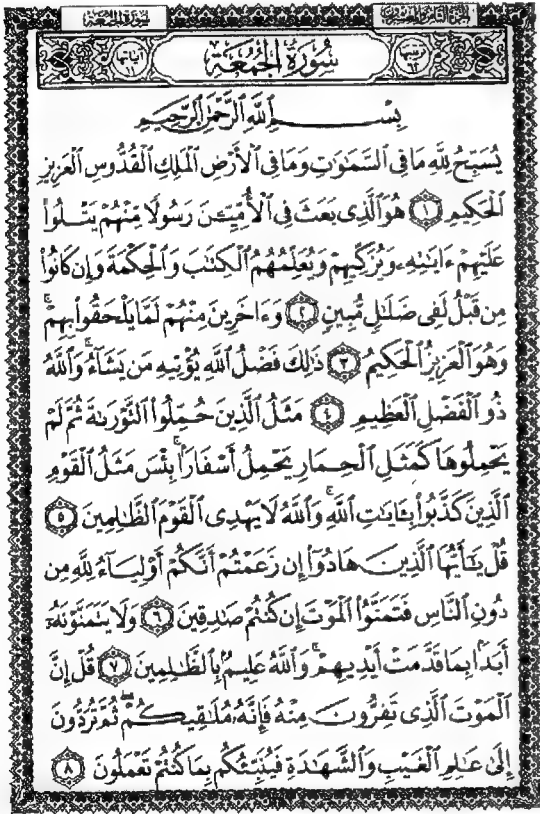 الجزء الثامن والعشرون سورة الجمعة
ترتيبها ٦٢ سُورَةُ الجُمُعَةِ آياتها ١١
بِسْمِ ٱللَّهِ ٱلرَّحْمَٰنِ ٱلرَّحِيمِ
يُسَبِّحُ لِلَّهِ مَا فِي ٱلسَّمَٰوَٰتِ وَمَا فِي ٱلْأَرْضِ ٱلْمَلِكِ ٱلْقُدُّوسِ ٱلْعَزِيزِ
ٱلْحَكِيمِ ١ هُوَ ٱلَّذِي بَعَثَ فِي ٱلْأُمِّيِّـۧنَ رَسُولًا مِّنْهُمْ يَتْلُوا۟
عَلَيْهِمْ ءَايَٰتِهِۦ وَيُزَكِّيهِمْ وَيُعَلِّمُهُمُ ٱلْكِتَٰبَ وَٱلْحِكْمَةَ وَإِن كَانُوا۟
مِن قَبْلُ لَفِي ضَلَٰلٍ مُّبِينٍ ٢ وَءَاخَرِينَ مِنْهُمْ لَمَّا يَلْحَقُوا۟ بِهِمْ ۚ
وَهُوَ ٱلْعَزِيزُ ٱلْحَكِيمُ ٣ ذَٰلِكَ فَضْلُ ٱللَّهِ يُؤْتِيهِ مَن يَشَآءُ ۚ وَٱللَّهُ
ذُو ٱلْفَضْلِ ٱلْعَظِيمِ ٤ مَثَلُ ٱلَّذِينَ حُمِّلُوا۟ ٱلتَّوْرَىٰةَ ثُمَّ لَمْ
يَحْمِلُوهَا كَمَثَلِ ٱلْحِمَارِ يَحْمِلُ أَسْفَارًۢا ۚ بِئْسَ مَثَلُ ٱلْقَوْمِ
ٱلَّذِينَ كَذَّبُوا۟ بِـَٔايَٰتِ ٱللَّهِ ۚ وَٱللَّهُ لَا يَهْدِي ٱلْقَوْمَ ٱلظَّٰلِمِينَ ٥
قُلْ يَٰٓأَيُّهَا ٱلَّذِينَ هَادُوٓا۟ إِن زَعَمْتُمْ أَنَّكُمْ أَوْلِيَآءُ لِلَّهِ مِن
دُونِ ٱلنَّاسِ فَتَمَنَّوُا۟ ٱلْمَوْتَ إِن كُنتُمْ صَٰدِقِينَ ٦ وَلَا يَتَمَنَّوْنَهُۥٓ
أَبَدًۢا بِمَا قَدَّمَتْ أَيْدِيهِمْ ۚ وَٱللَّهُ عَلِيمٌۢ بِٱلظَّٰلِمِينَ ٧ قُلْ إِنَّ
ٱلْمَوْتَ ٱلَّذِي تَفِرُّونَ مِنْهُ فَإِنَّهُۥ مُلَٰقِيكُمْ ۖ ثُمَّ تُرَدُّونَ
إِلَىٰ عَٰلِمِ ٱلْغَيْبِ وَٱلشَّهَٰدَةِ فَيُنَبِّئُكُم بِمَا كُنتُمْ تَعْمَلُونَ ٨